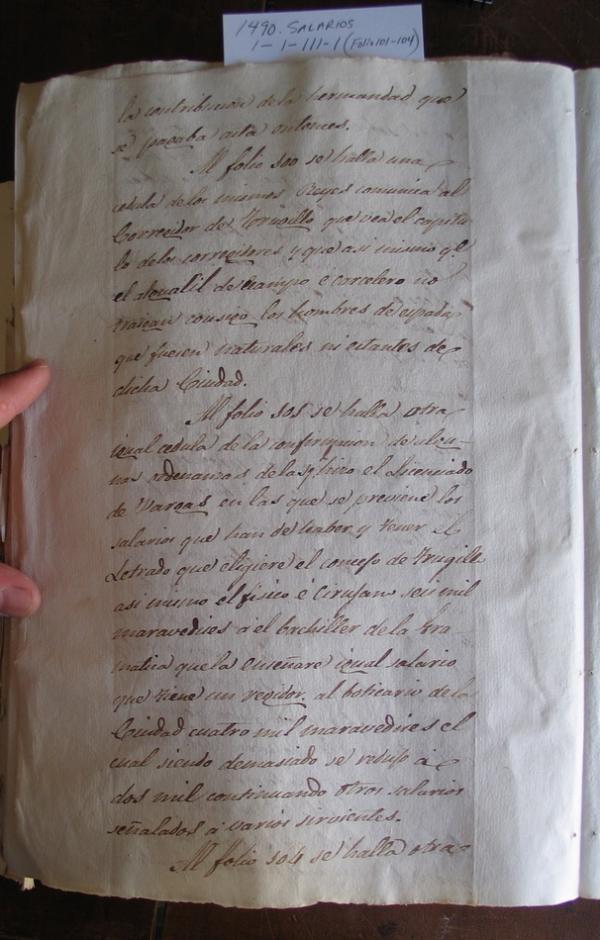 1490. SALARIOS
1-1-111-1 (Folio 101-104)
la contribucion de la hermandad que
se pagaba asta entonces.
Al folio 500 se halla una
cedula de los mismos Reyes comunica al
Corregidor de Trugillo que vea el capitu
lo de los corregidores y que asi mismo q.e
el alguacil de campo é carcelero no
traigan consigo los hombres de espada
que fuesen naturales ni estantes de
dicha Ciudad.
Al folio 501 se halla otra
igual cedula de la confirmacion de algu-
nas ordenanzas de las q hizo el Licenciado
de Vargas en las que se previene los
salarios que han de haber y tener el
Letrado que eligiere el concejo de Trugillo
asi mismo el fisico é Cirujano seis mil
maravedises á el bachiller de la Gra
matica que la enseñare igual salario
que tiene un regidor, al boticario de la
Ciudad cuatro mil maravedises el
cual siendo demasiado se redujo á
dos mil continuando otros salarios
señalados á varios sirvientes.
Al folio 504 se halla otra